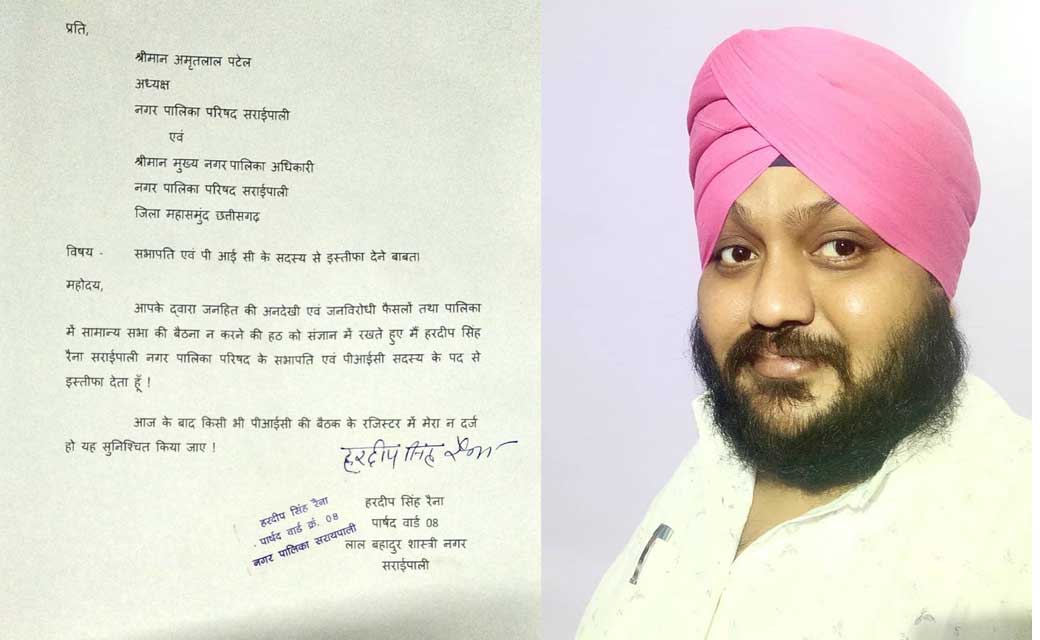 प्रति,
श्रीमान अमृतलाल पटेल
अध्यक्ष
नगर पालिका परिषद सराईपाली
एवं
श्रीमान मुख्य नगर पालिका अधिकारी
नगर पालिका परिषद सराईपाली
जिला महासमुंद छत्तीसगढ़
विषय - सभापति एवं पी आई सी के सदस्य से इस्तीफा देने बाबत।
महोदय,
आपके द्वारा जनहित की अनदेखी एवं जनविरोधी फैसलों तथा पालिका
में सामान्य सभा की बैठना न करने की हठ को संज्ञान में रखते हुए मैं हरदीप सिंह
रैना सराईपाली नगर पालिका परिषद के सभापति एवं पीआईसी सदस्य के पद से
इस्तीफा देता हूँ !
आज के बाद किसी भी पीआईसी की बैठक के रजिस्टर में मेरा न दर्ज
हो यह सुनिश्चित किया जाए !
हरदीप सिंह रैना
हरदीप सिंह रैना
पार्षद वार्ड 08
लाल बहादुर शास्त्री नगर
सराईपाली
हरदीप सिंह रैना
पार्षद वार्ड क्रं. 08
नगर पालिका सरायपाली